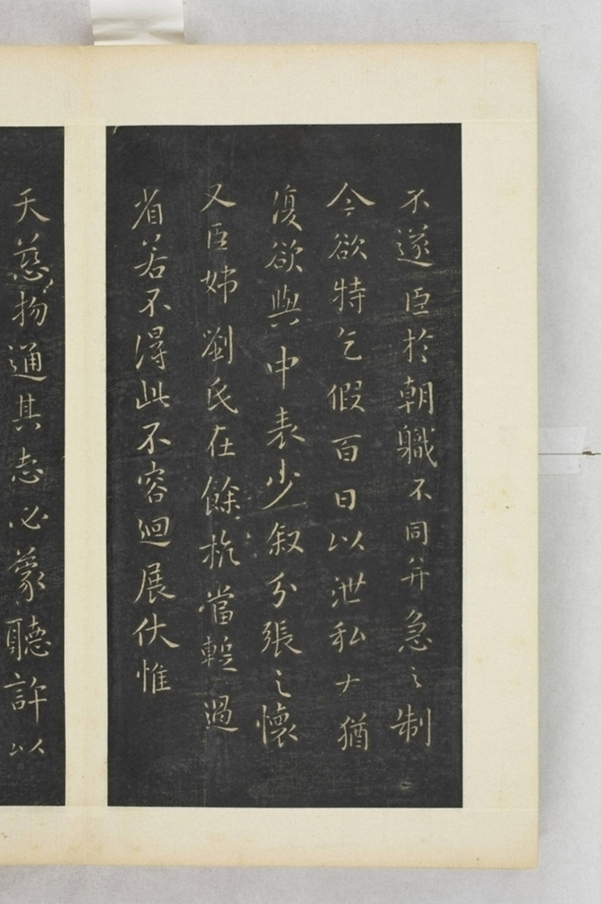 不遂臣於朝職不同并急之制
今欲特乞假百日以泄私
猶復欲與中表少叙分張之懷
又臣姊劉氏在餘杭當蹔過
省若不得此不容迴展伏惟
天慈物通其志必蒙聽許以